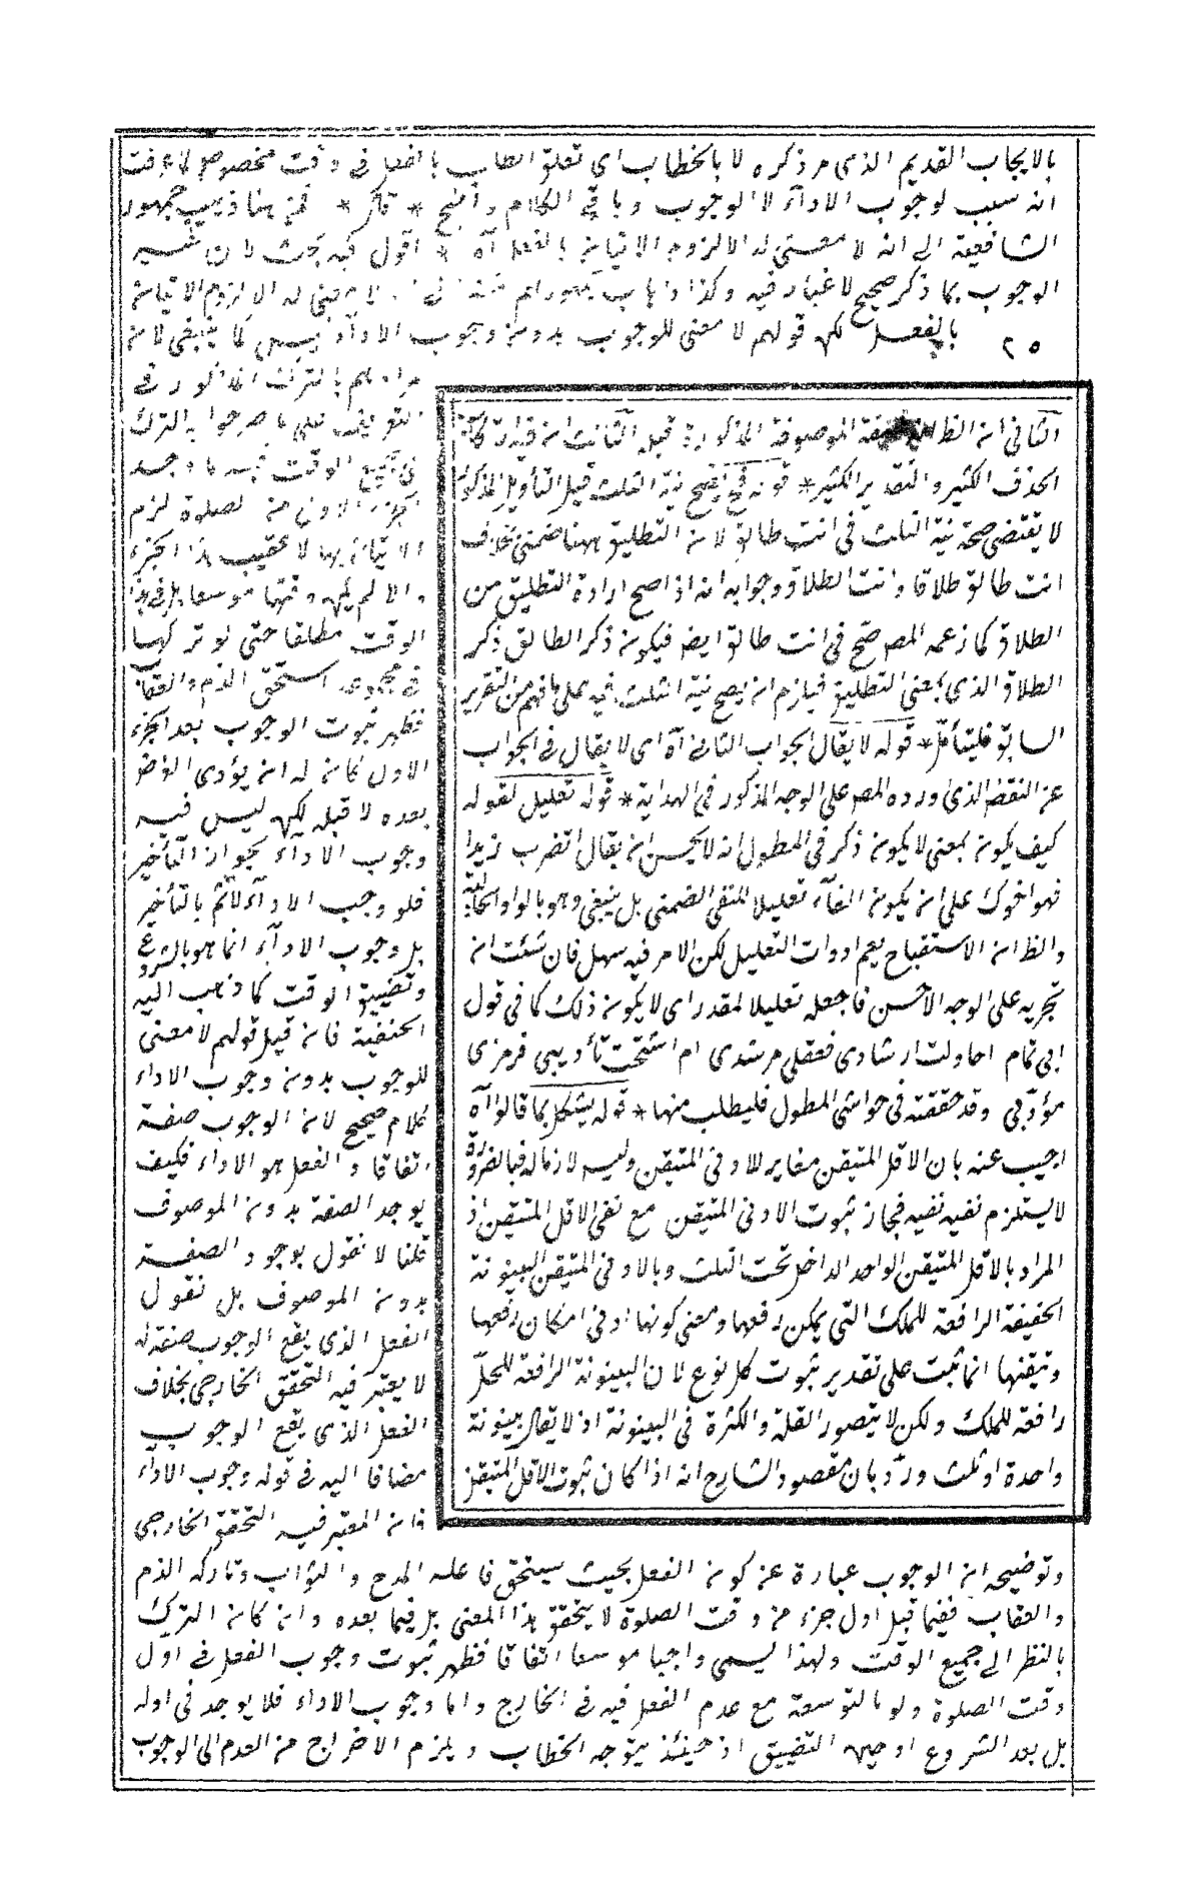 بالايجاب القديم الذى مر ذكره لا بالخطاب اى تعلق الطلب بالفعل فى وقت مخصوص لما عرفت
انه سبب لوجوب الادآء لا الوجوب وباقى الكلام واضح * قال * فمن هنا ذهب جمهور
الشافعية الى انه لا معنى له الا لزوم الاتيان بالفعل آه * اقول فيه بحث لان تفسير
الوجوب بما ذكر صحيح لا غبار فيه وكذا ذهاب جمهورهم لا معنى له الا لزوم الاتيان
٢٥ بالفعل لكن قولهم لا معنى للوجوب بدون وجوب الادآء ليس كما ينبغى لان
مرادهم بالترك المذكور فى
التعريف على ما صرحوا به الترك
فى جميع الوقت
الجزء الاول من الصلوة لزم
الاتيان بها لا عقيب هذا الجزء
والا لم يكن وقتها موسعا بل فى هذا
الوقت مطلقا حتى لو تركها
فى مجموعه استحق الذم والعقاب
فظهر ثبوت الوجوب بعد الجزء
الاول كان له ان يؤدى الفرض
بعده لا قبله لكن ليس فيه
وجوب الاداء لجواز التأخير
فلو وجب الادآء لأثم بالتأخير
بل وجوب الادآء انما هو بالشروع
وتضييق الوقت كما ذهب اليه
الحنفية فان قيل قولهم لا معنى
للوجوب بدون وجوب الاداء
كلام صحيح لان الوجوب صفة
اتفاقا والفعل هو الاداء فكيف
يوجد الصفة بدون الموصوف
قلنا لا نقول بوجود الصفة
بدون الموصوف بل نقول
الفعل الذى يقع الوجوب صفة له
لا يعتبر فيه التحقق الخارجى بخلاف
الفعل الذى يقع الوجوب
مضافا اليه فى قوله وجوب الاداء
فان المعتبر فيه التحقق الخارجى
وتوضيحه ان الوجوب عبارة عن كون الفعل بحيث يستحق فاعله المدح والثواب وتاركه الذم
والعقاب ففيما قبل اول جزء من وقت الصلوة لا يتحقق هذا المعنى بل فيما بعده وان كان الترك
بالنظر الى جميع الوقت ولهذا يسمى واجبا موسعا اتفاقا فظهر ثبوت وجوب الفعل فى اول
وقت الصلوة ولو بالتوسعة مع عدم الفعل فيه فى الخارج واما وجوب الاداء فلا يوجد فى اوله
بل بعد الشروع او حين التضييق اذ حينئذ يتوجه الخطاب ويلزم الاخراج من العدم الى الوجوب
الثانى ان الظاهر صفة الموصوفة المذكورة قبله الثالث ان فيه ارتكاب
الحذف الكثير والتقدير الكثير * قوله فح يصح نية الثلث قيل التأويل المذكور
لا يقتضى صحة نية الثلث فى انت طالق لان التطليق ههنا ضمنى بخلاف
انت طالق طلاقا وانت الطلاق وجوابه انه اذا صح ارادة التطليق من
الطلاق كما زعمه المص صح فى انت طالق ايض فيكون ذكر الطالق ذكر
الطلاق الذى بمعنى التطليق فيلزم ان يصح نية الثلث فيه على ما فهم من التقرير
السابق فليتأمل * قوله لا يقال الجواب الثانى آه اى لا يقال فى الجواب
عن النقض الذى اورده المص على الوجه المذكور فى الهداية * قوله تعليل لقوله
كيف يكون بمعنى لا يكون ذكر فى المطول انه لا يحسن ان يقال اتضرب زيدا
فهو اخوك على ان يكون الفآء تعليلا للنفى الضمنى بل ينبغى وهو بالواو الحالية
والظ ان الاستقباح يعم ادوات التعليل لكن الامر فيه سهل فان شئت ان
تجريه على الوجه الاحسن فاجعله تعليلا لمقدر اى لا يكون ذلك كما فى قول
ابى تمام احاولت ارشادى فعقلى مرشدى ام اشتقت تأديبى فدهرى
مؤدبى وقد حققته فى حواشى المطول فليطلب منها * قوله يشكل بما قالوا آه
اجيب عنه بان الاقل المتيقن مغاير للادنى المتيقن وليس لازما له فبالضرورة
لا يستلزم نفيه نفيه فيجاز ثبوت الادنى المتيقن مع نفى الاقل المتيقن اذ
المراد بالاقل المتيقن الواحد الداخل تحت الثلث وبالادنى المتيقن البينونة
الخفيفة الرافعة للملك التى يمكن رفعها ومعنى كونها ادنى امكان رفعها
وتيقنها انما ثبت على تقدير ثبوت كل نوع لان البينونة الرافعة للمحل
رافعة للملك ولكن لا يتصور القلة والكثرة فى البينونة اذ لا يقال بينونة
واحدة او ثلث ورد بان مقصود الشارح انه اذا كان ثبوت الاقل المتيقن